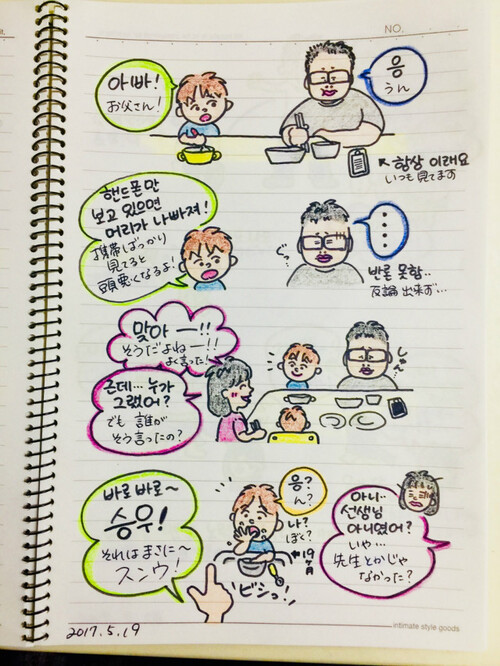 NO.
아빠!
お父さん!
응
うん
↖항상 이래요
いつも見てます
핸드폰만
보고 있으면
머리가 나빠져!
携帯ばっかり
見てると
頭悪くなるよ!
ぐっ?
반론 못함..
反論出来ず…
맞아ー!!
そうだよねー!!
よく言った!
근데… 누가
그랬어?
でも誰が
そう言ったの?
바로바로~
승우!
それはまさに~
スンウ!
응?
ん?
나?
ぼく?
19ヶ月
ビシっ!
아니..
선생님
아니였어?
いや…
先生とかじゃ
なかった?
2017.5.19
intimate style goods